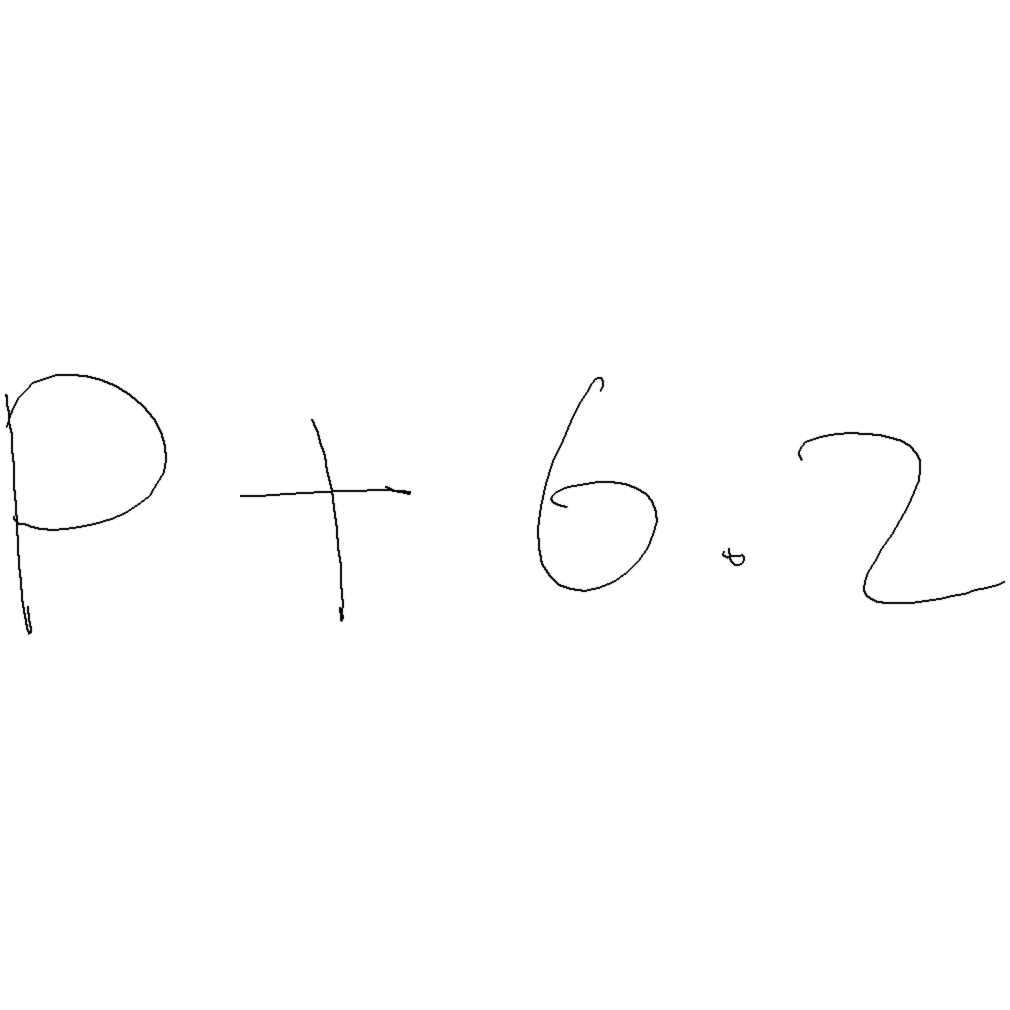 P + 6.2